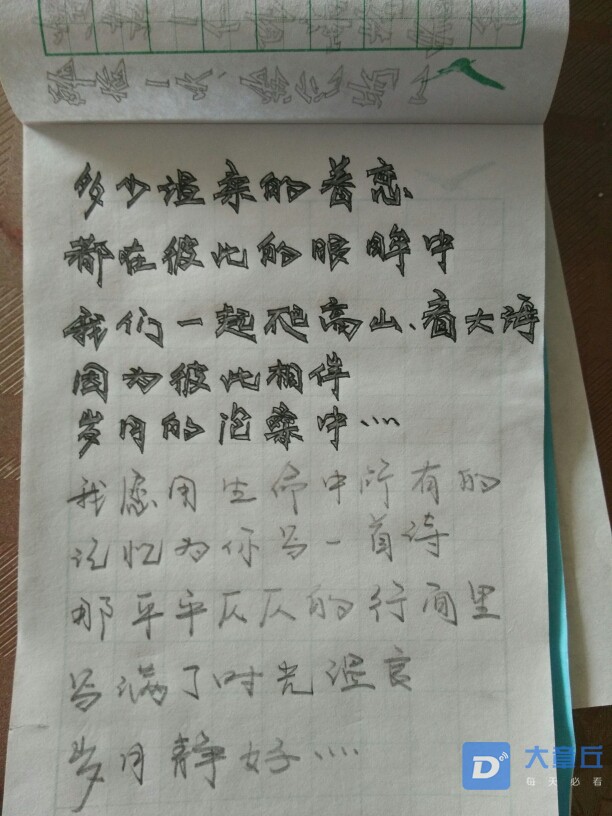 多少温柔的眷恋、
都在彼此的眼眸中
我们一起爬高山、看大海
因为彼此相伴
岁月的沧桑中…
我愿用生命中所有的
记忆为你写一首诗
那平平仄仄的行间里
写满了时光温言
岁月静好…
大章丘
每天必看